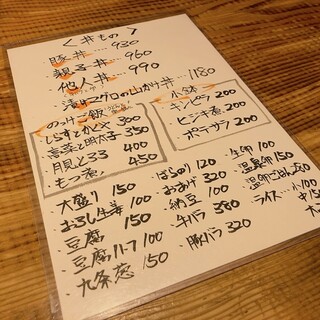 ＜丼もの＞
豚丼…930
親子丼…960
他人丼…990
漬けマグロの山かけ丼…1180
のっけご飯
・しらすとかつメ 300
・高菜と明太子 350
・月見とろろ 400
・もつ煮 450
小鉢
・キンピラ 200
・ヒジキ煮 200
・ポテサラ 200
・大盛り 150
・おろし生姜 100
・豆腐 150
・豆腐ハーフ 100
・九条葱 150
・ばらのり 120
・おあげ 320
・納豆 100
・牛バラ 380
・豚バラ 320
・生卵 100
・温泉卵 150
・温卵ごはん 250
・ライス…小100
中150